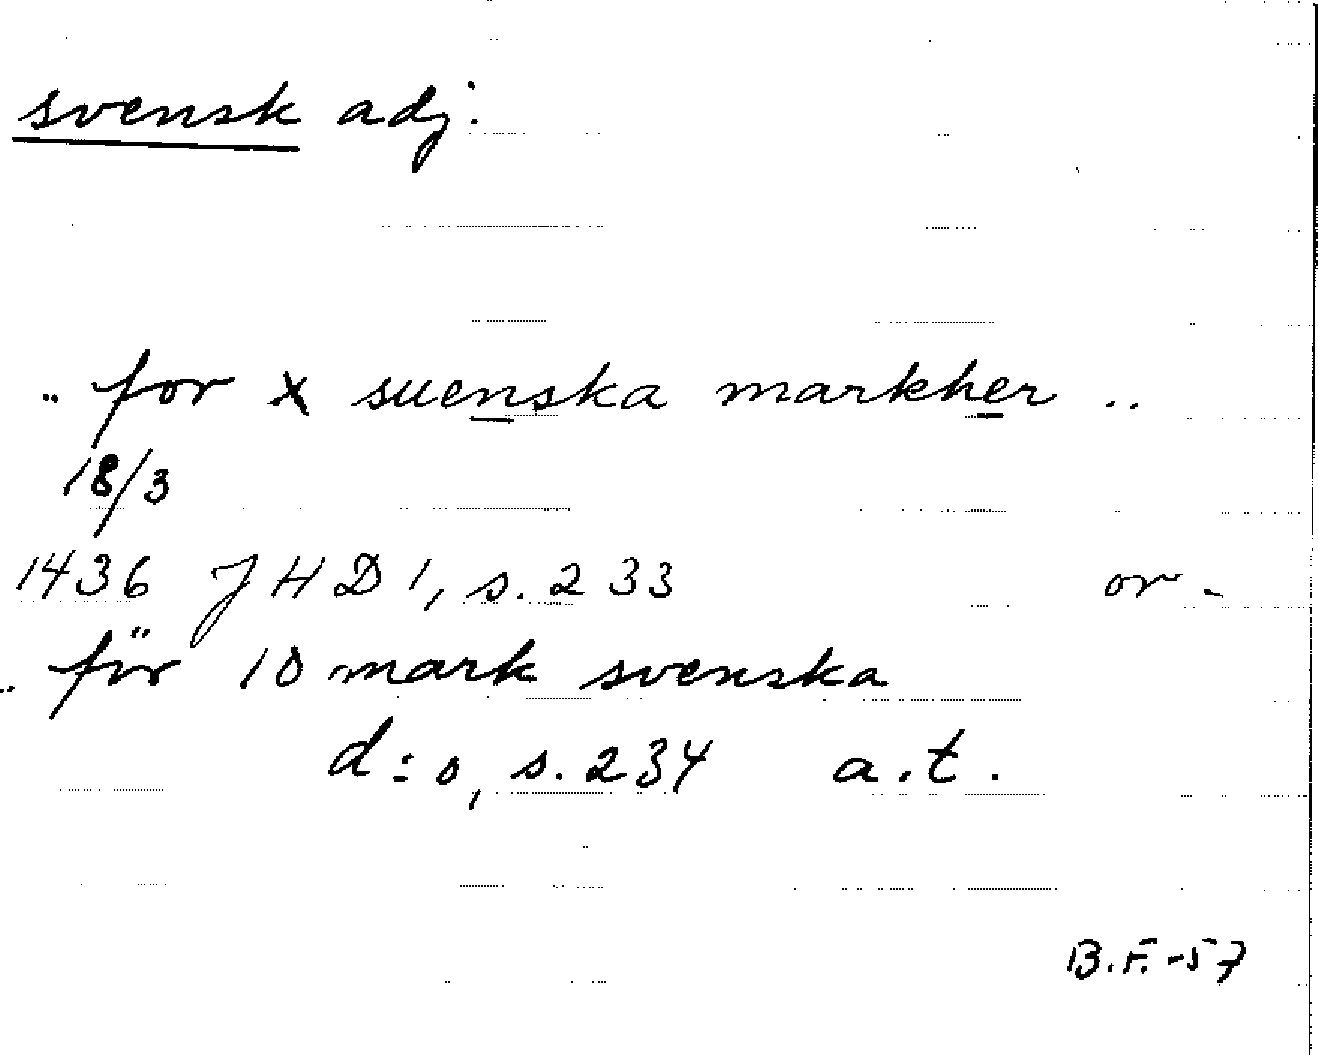 svensk adj.
.. for x suenska markher ..
18/3
1436 JHD 1, s. 233 or.
.. för 10 mark svenska
d:o, s. 234 a.t.
B.F.-57